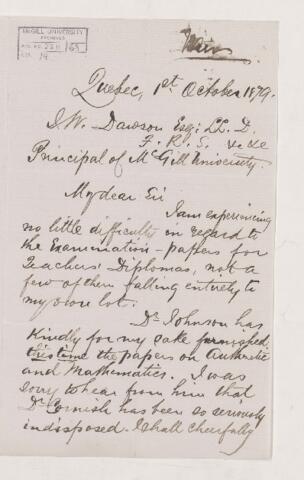 McGILL UNIVERSITY
ARCHIVES
ACC. NO. 2211/69
REF. 14
Quebec, 1st October 1879.
J. W. Dawson Esq: LL. D.
F. R. S. &c &c
Principal of McGill University.
My dear Sir
I am experiencing
no little difficulty in regard to
the Examination-papers for
Teachers' Diplomas, not a
few of them falling entirely to
my own lot.
Dr Johnson has
kindly for my sake furnished
this time the papers on Arithmetic
and Mathematics. I was
sorry to hear from him that
Dr Cornish has been so seriously
indisposed. I shall cheerfully